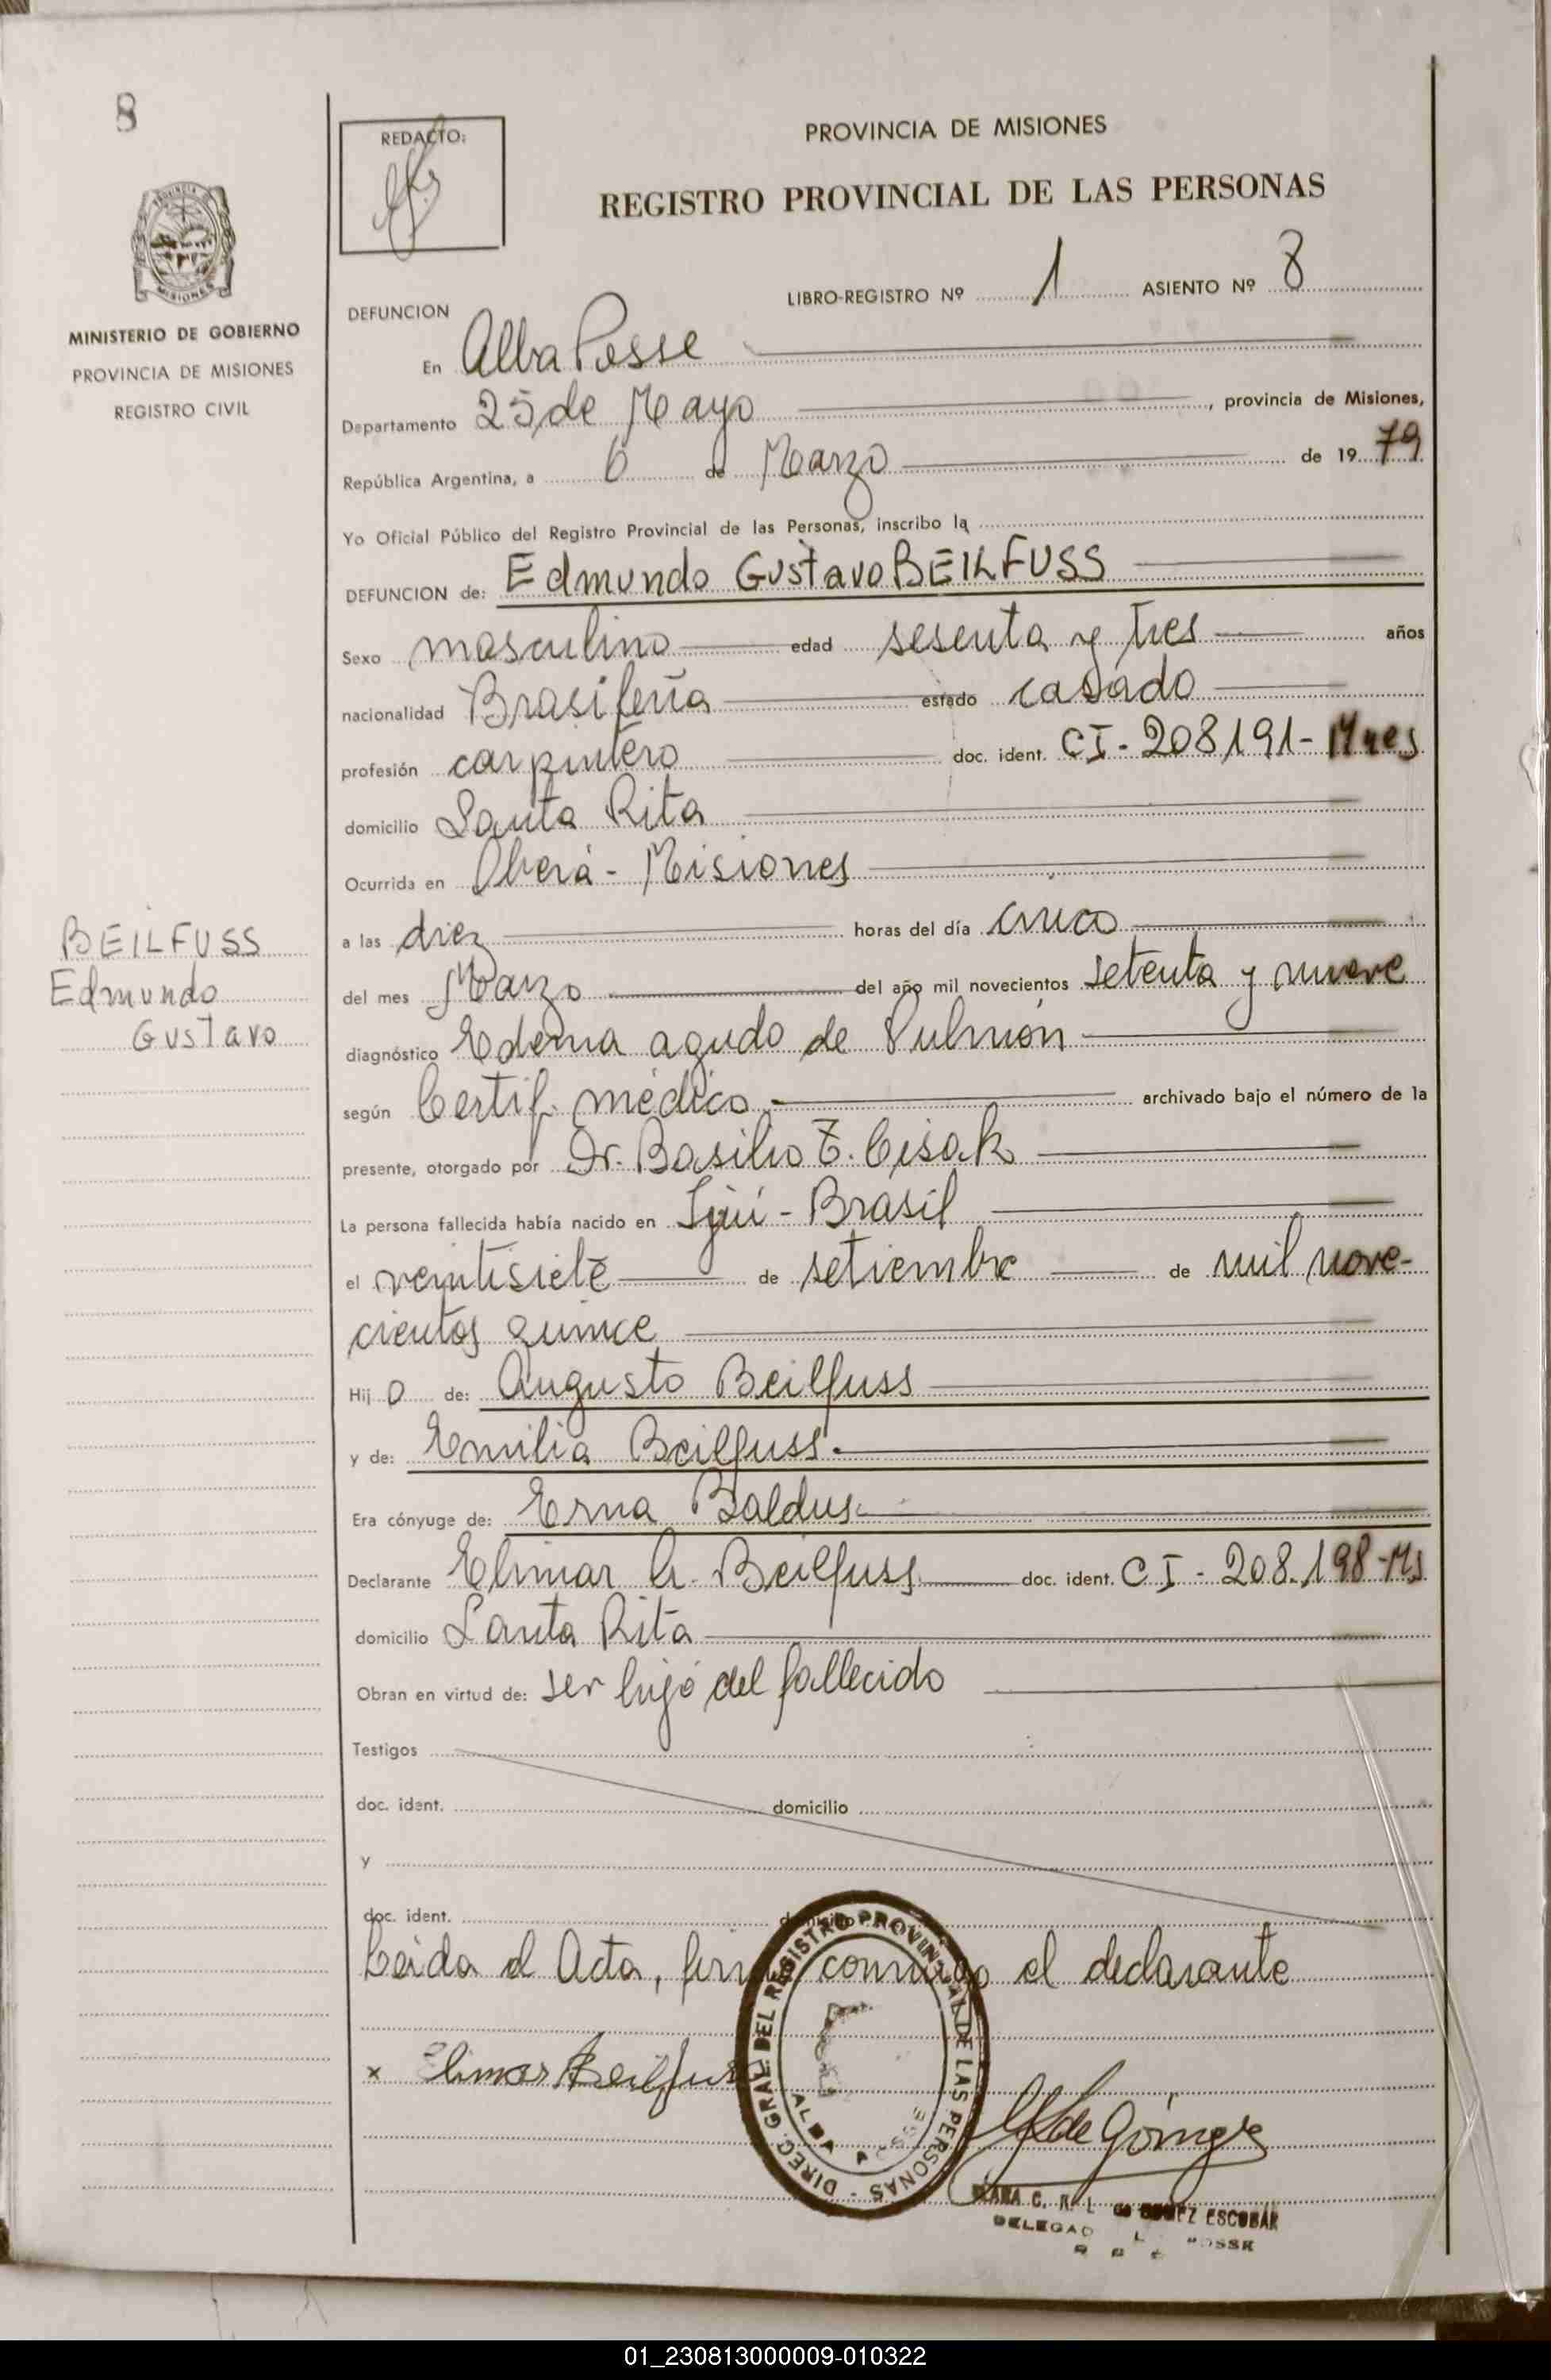 8
REDACTO:
PROVINCIA DE MISIONES
REGISTRO PROVINCIAL DE LAS PERSONAS
LIBRO-REGISTRO Nº 1 ASIENTO Nº 8
MISIONES
MINISTERIO DE GOBIERNO
PROVINCIA DE MISIONES
REGISTRO CIVIL
DEFUNCION
En Alba Posse
Departamento 25 de Mayo, provincia de Misiones,
República Argentina, a 6 de Marzo de 1979
Yo Oficial Público del Registro Provincial de las Personas, inscribo la
DEFUNCION de: Edmundo Gustavo BEILFUSS
Sexo masculino edad sesenta y tres años
nacionalidad Brasileña estado casado
profesión carpintero doc. ident. CI-208191-Mnes
domicilio Santa Rita
Ocurrida en Oberá - Misiones
BEILFUSS
Edmundo
Gustavo
a las diez horas del día cinco
del mes Marzo del año mil novecientos setenta y nueve
diagnóstico Edema agudo de Pulmón
según Certif. médico archivado bajo el número de la
presente, otorgado por Dr. Basilio E. Cisak
La persona fallecida había nacido en Ijuí - Brasil
el veintisiete de setiembre de mil nove-
cientos quince
Hijo de: Augusto Beilfuss
y de: Emilia Beilfuss.
Era cónyuge de: Erna Baldus
Declarante Elimar A. Beilfuss doc. ident. CI-208.198-Ms
domicilio Santa Rita
Obran en virtud de: ser hijo del fallecido
Testigos
doc. ident. domicilio
y
doc. ident. domicilio
Leida el Acta, firma conmigo el declarante
x Elimar Beilfuss
DIREC. GRAL. DEL REGISTRO PROVINCIAL DE LAS PERSONAS -
ALBA POSSE
ESCOBAR
01_230813000009-010322